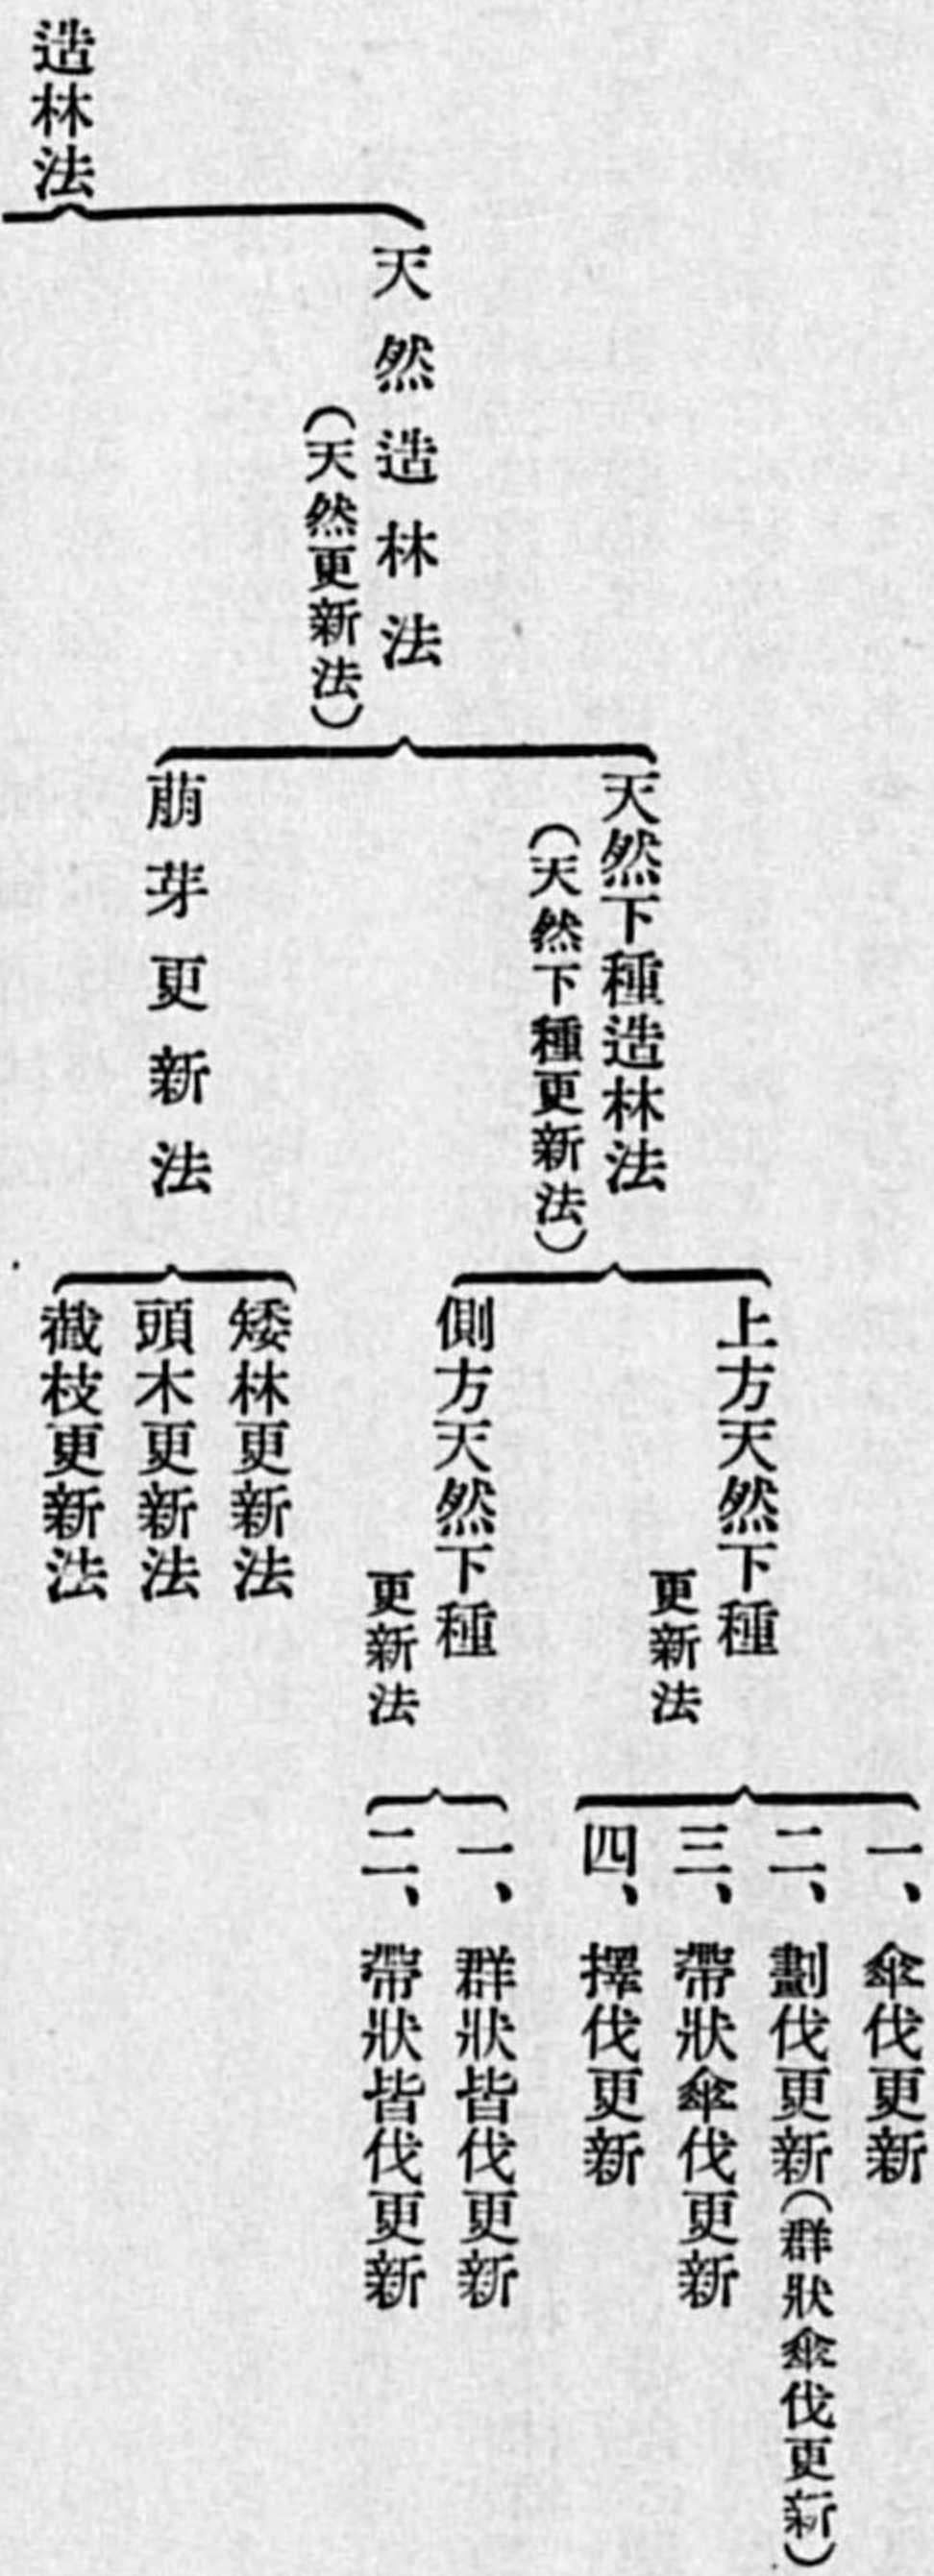 造林法
天然造林法
（天然更新法）
天然下種造林法
（天然下種更新法）
上方天然下種
更新法
一、傘伐更新
二、劃伐更新（群狀傘伐更新）
三、帶狀傘伐更新
四、擇伐更新
側方天然下種
更新法
一、群狀皆伐更新
二、帶狀皆伐更新
萠芽更新法
矮林更新法
頭木更新法
截枝更新法